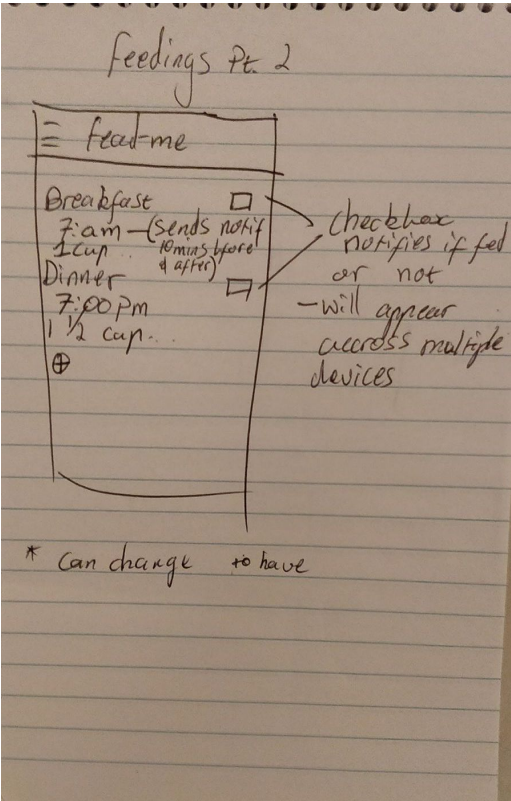 Feedings Pt. 2
feed-me
Breakfast
7:am - (sends notif
1 cup .. 10 mins before
& after)
Dinner
7:00 pm
1 1/2 cup...
checkbox
notifies if fed
or not
- will appear
accross multiple
devices
* can change to have